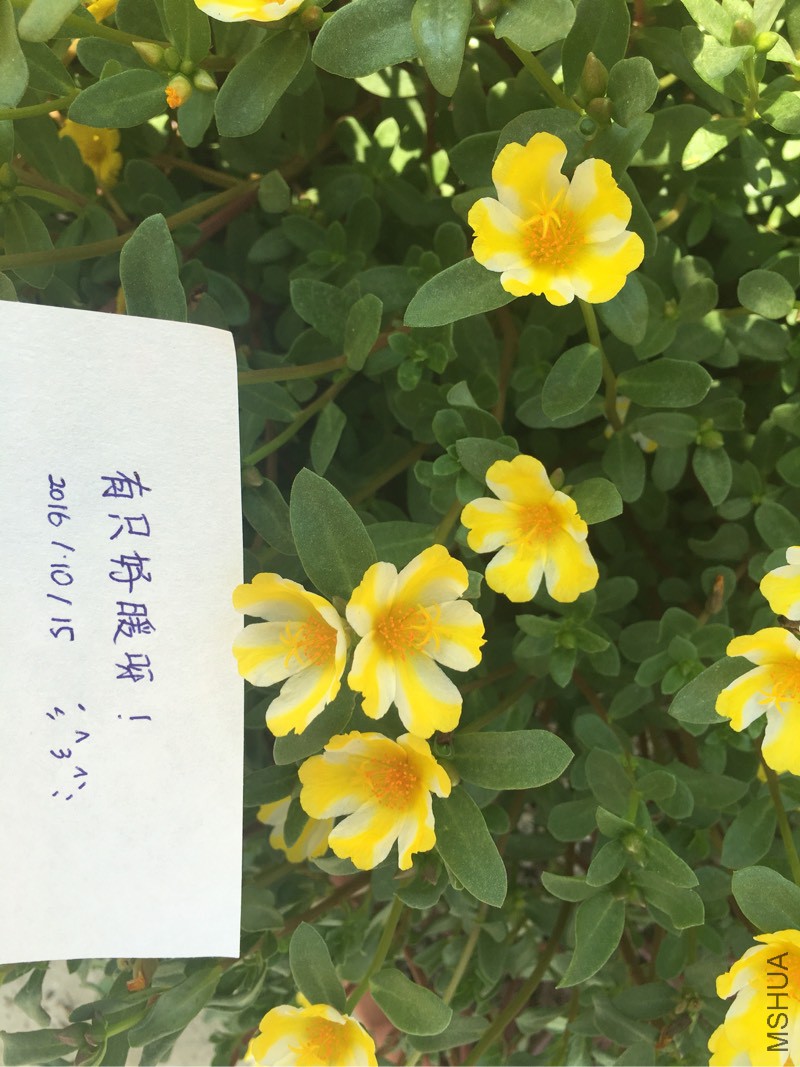 有只好暖呀！
2016/.10/15
MSHUA